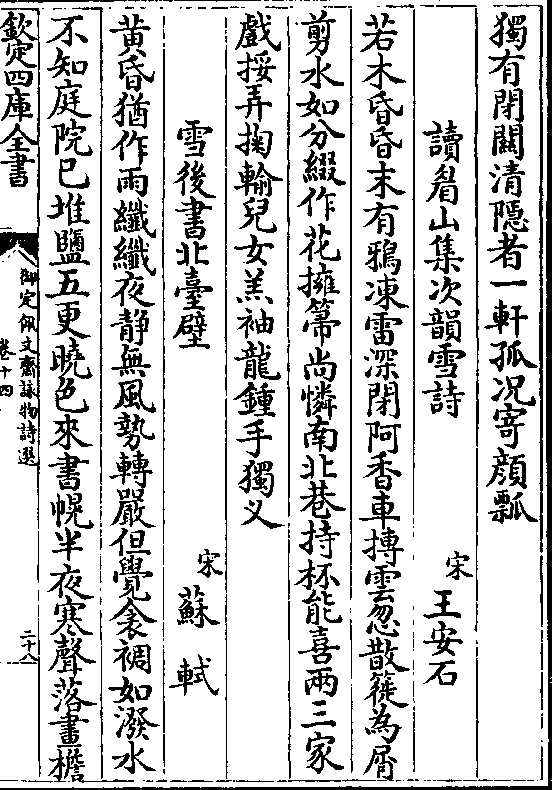 獨有閉關清隱者一軒孤况寄顔瓢
讀眉山集次韻雪詩
宋 王安石
若木昏昏末有鴉凍雷深閉阿香車摶雲忽散簁為屑
剪水如分綴作花擁箒尚憐南北巷持杯能喜兩三家
戲挼弄掬輸兒女羔袖龍鍾手獨叉
雪後書北臺壁
宋 蘇軾
黄昏猶作雨纖纖夜静無風勢轉嚴但覺衾裯如潑水
不知庭院已堆鹽五更曉色來書幌半夜寒聲落畫檐
欽定四庫全書
御定佩文齋詠物詩選
卷十四
二十八